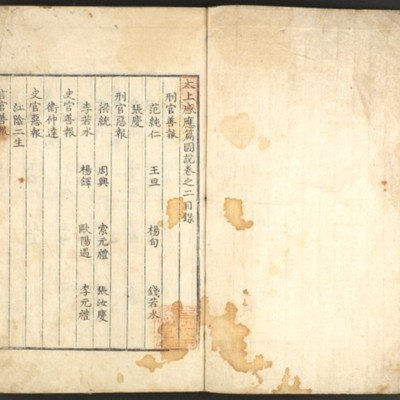 太上感應篇圖說卷之二目錄
刑官善報
范純仁 王旦 楊旬 錢若水
張慶
刑官惡報
梁統 周興 索元禮 張汝慶
李若水 楊鐸 歐陽遇 李元禮
史官善報
衛仲達
史官惡報
江陰二生
官善報